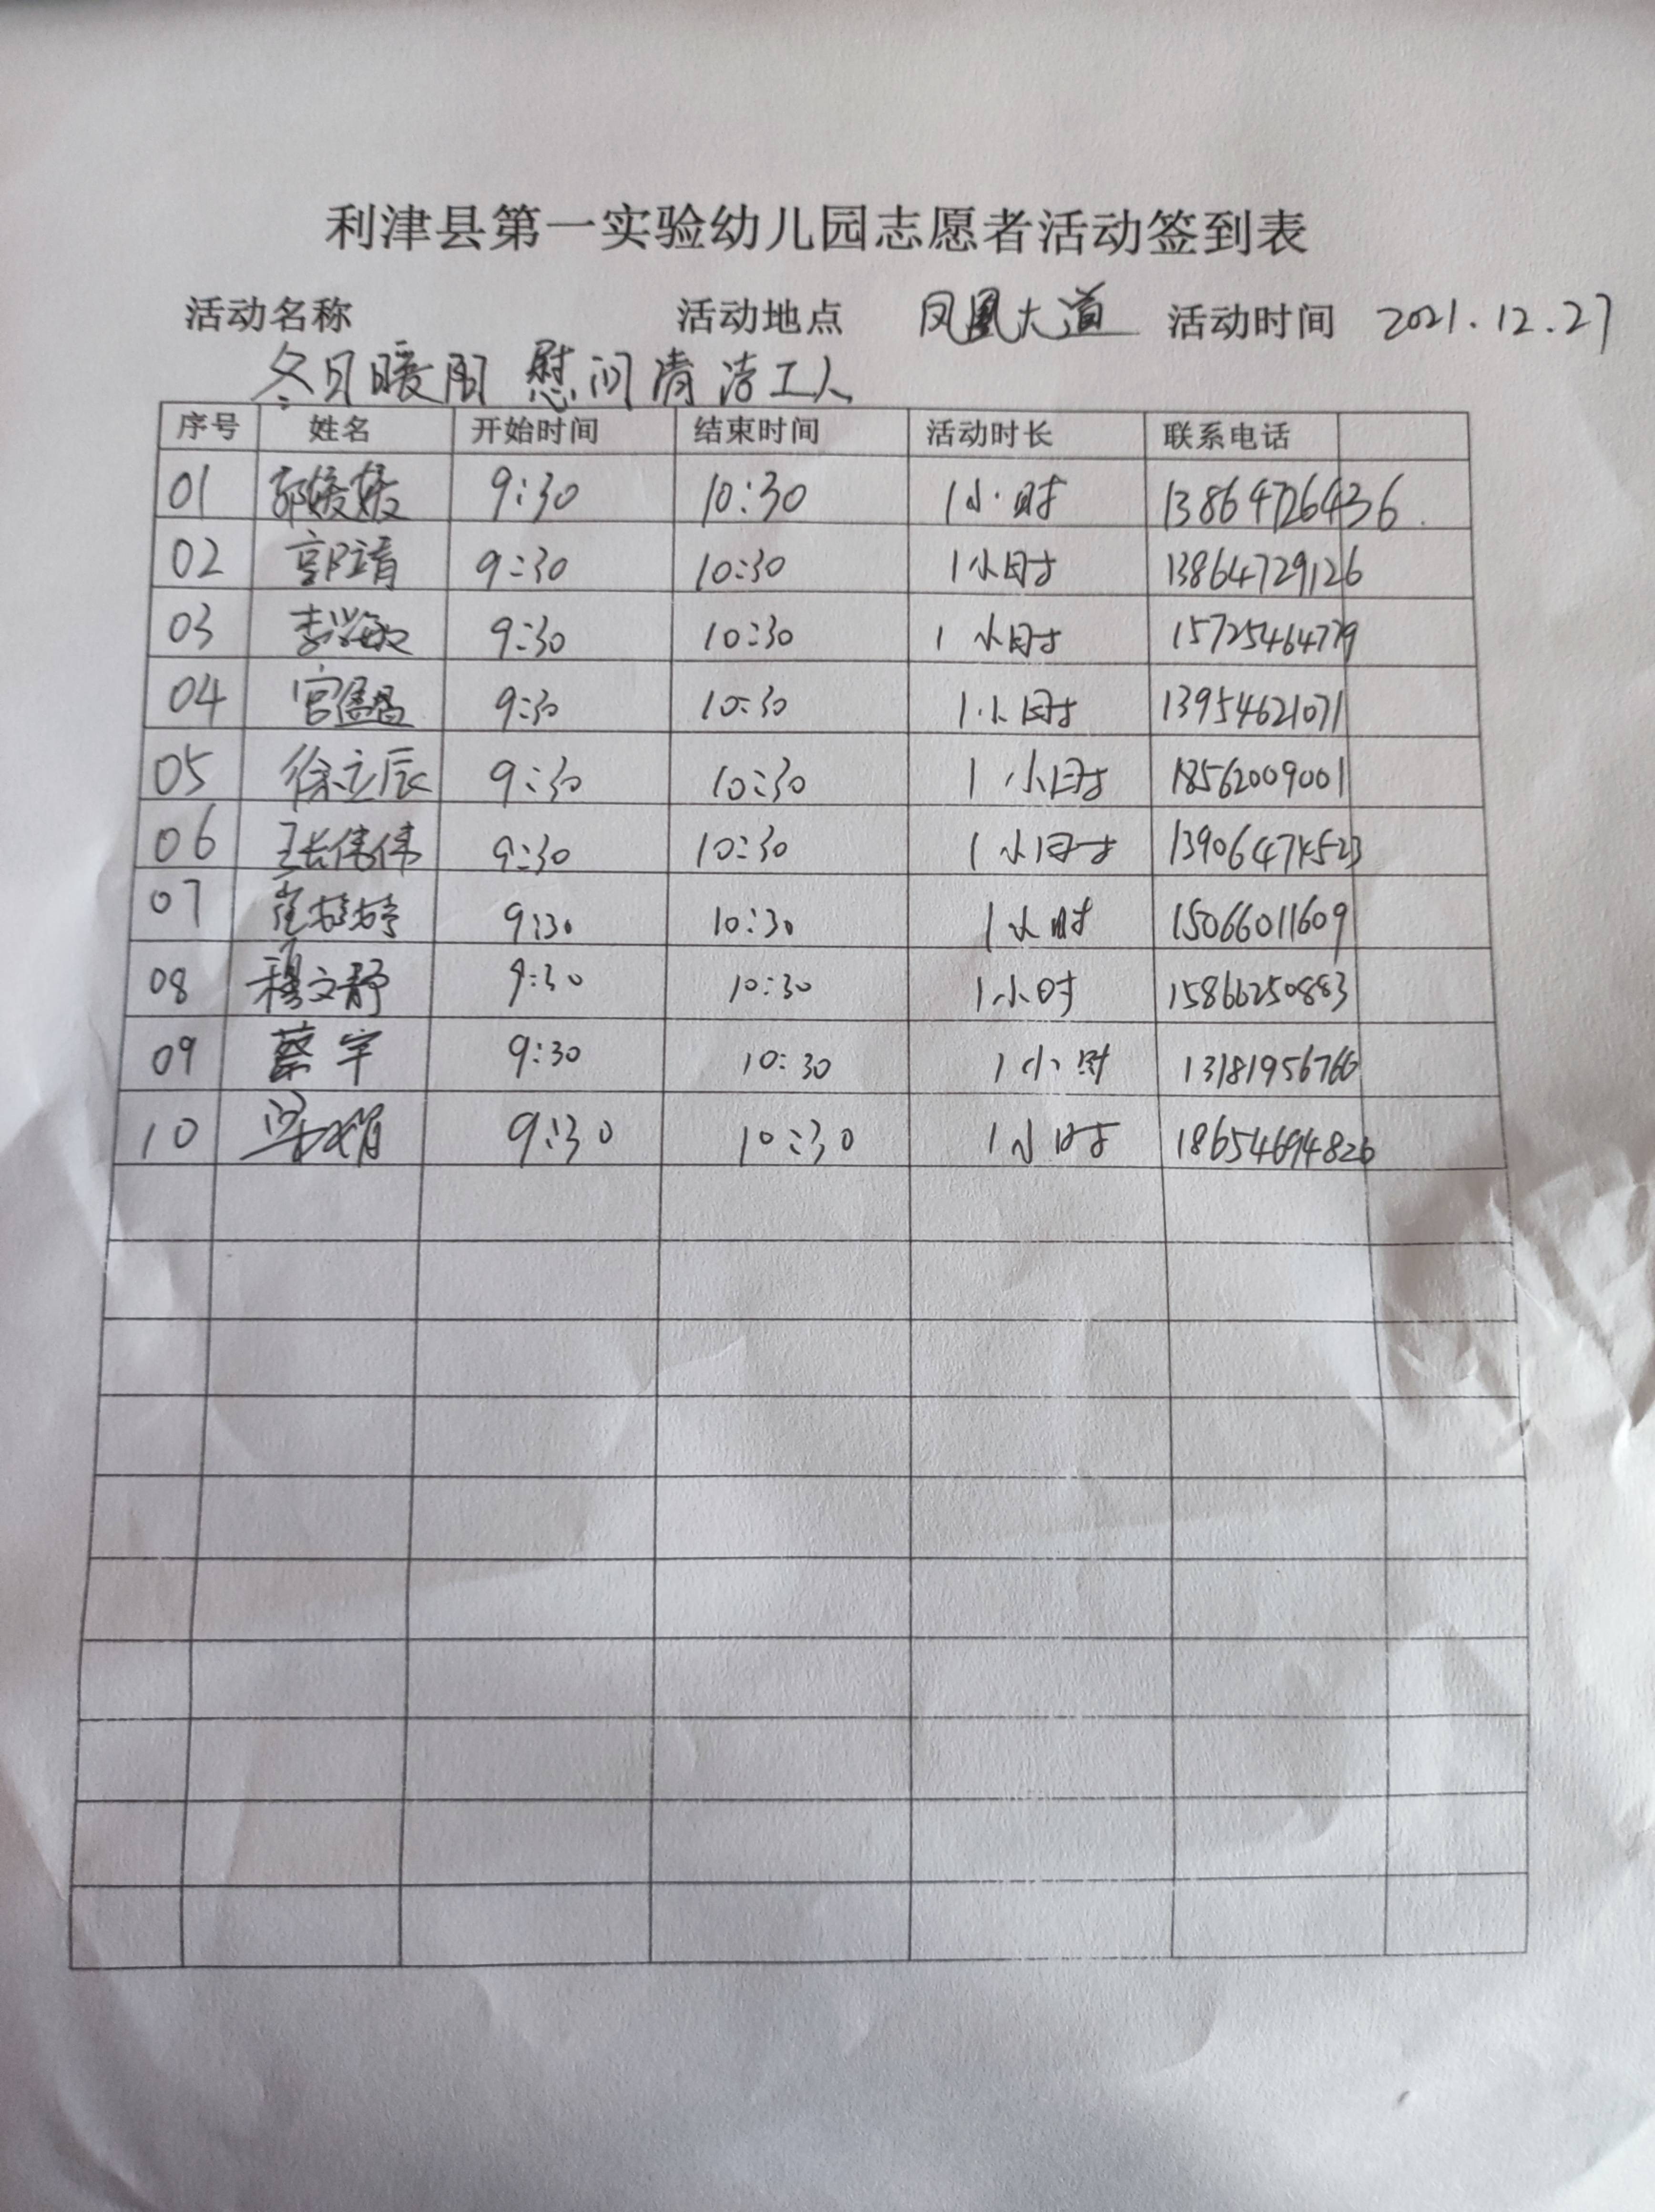 利津县第一实验幼儿园志愿者活动签到表
活动名称 活动地点 凤凰大道 活动时间 2021.12.27
冬日暖阳 慰问清洁工人
序号 姓名 开始时间 结束时间 活动时长 联系电话
01 媛媛 9:30 10:30 1小时 13864726436
02 郭靖 9:30 10:30 1小时 13864729126
03 李 敏 9:30 10:30 1小时 15725464779
04 宫 9:30 10:30 1小时 13954621071
05 徐立辰 9:30 10:30 1小时 18562009001
06 王长伟伟 9:30 10:30 1小时
07 崔婷婷 9:30 10:30 1小时 15066011609
08 穆文静 9:30 10:30 1小时 15866250883
09 蔡宇 9:30 10:30 1小时 13181956766
10 9:30 10:30 1小时 18654694826